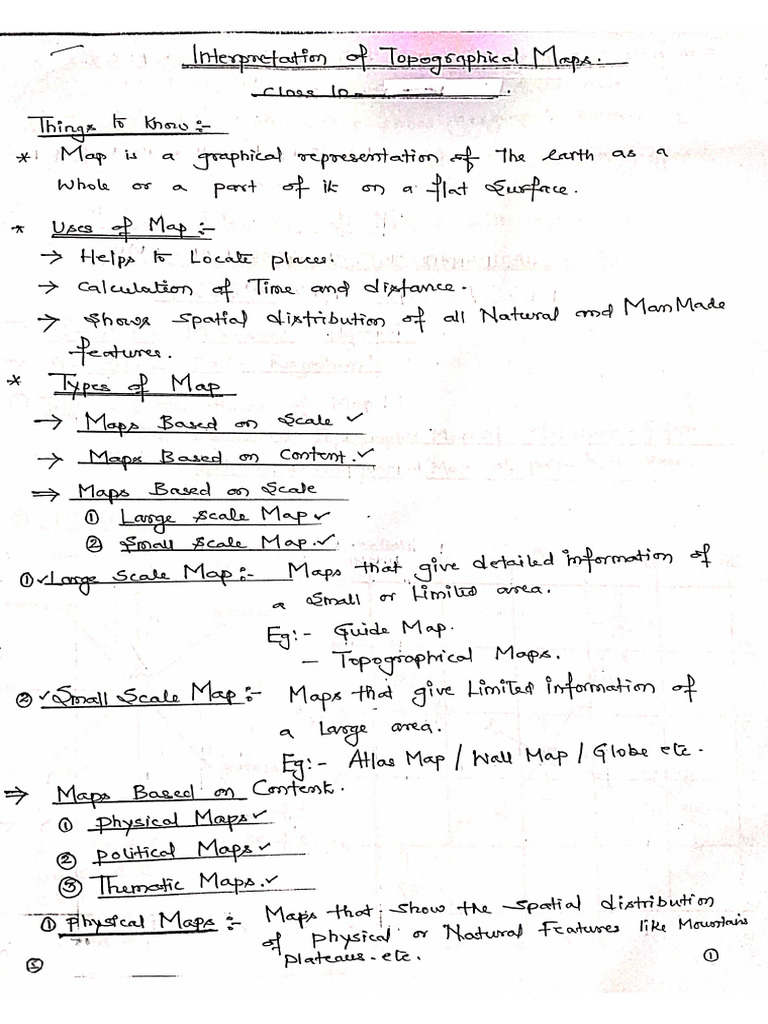 Interpretation of Topographical Maps.
Class 10
Things to know :-
* Map is a graphical representation of the earth as a
whole or a part of it on a flat surface.
* Uses of Map :-
→ Helps to Locate places.
→ Calculation of Time and distance.
→ Shows spatial distribution of all Natural and ManMade
features.
* Types of Map
→ Maps Based on Scale ✓
→ Maps Based on Content. ✓
⇒ Maps Based on Scale
① Large Scale Map ✓
② Small Scale Map. ✓
① ✓ Large Scale Map :- Maps that give detailed information of
a small or Limited area.
Eg :- Guide Map.
- Topographical Maps.
② ✓ Small Scale Map :- Maps that give Limited information of
a Large area.
Eg :- Atlas Map / Wall Map / Globe etc.
⇒ Maps Based on Content.
① Physical Maps ✓
② Political Maps ✓
③ Thematic Maps. ✓
① Physical Maps :- Maps that show the spatial distribution
of physical or Natural Features like Mountains
Plateaus. etc.
⑤ ①